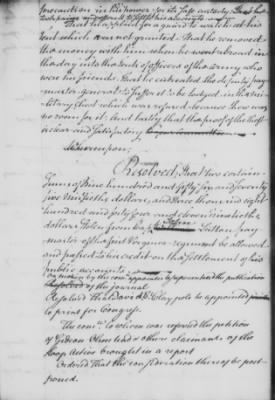 precaution in his power for its safe custody
that he applied for a guard to watch at his
tent which was not granted. That he removed
the money with him when he went abroad in
the day into the tents of officers of the army who
were his friends. That he entreated the deputy pay
master general to suffer it to be lodged in the mi-
litary Chest which was refused because there was
no room for it. And lastly that the proof of the theft
is clear and satisfactory
Whereupon,
Resolved, That two certain
sums of Nine hundred and fifty six and seventy
five Ninetieths dollars, and three thousand eight
hundred and sixty four and eleven ninetieths
dollars stolen from
master of the first Virginia regiment be allowed
and passed to his credit on the settlement of his
public accounts.
of the journal
Resolved That David C. Claypole be appointed
to print for Congress.
The comee. to whom was referred the petition
of Gideon Olmstead & others claimants of the
sloop Active brought in a report
Ordered that the consideration thereof be post-
poned.